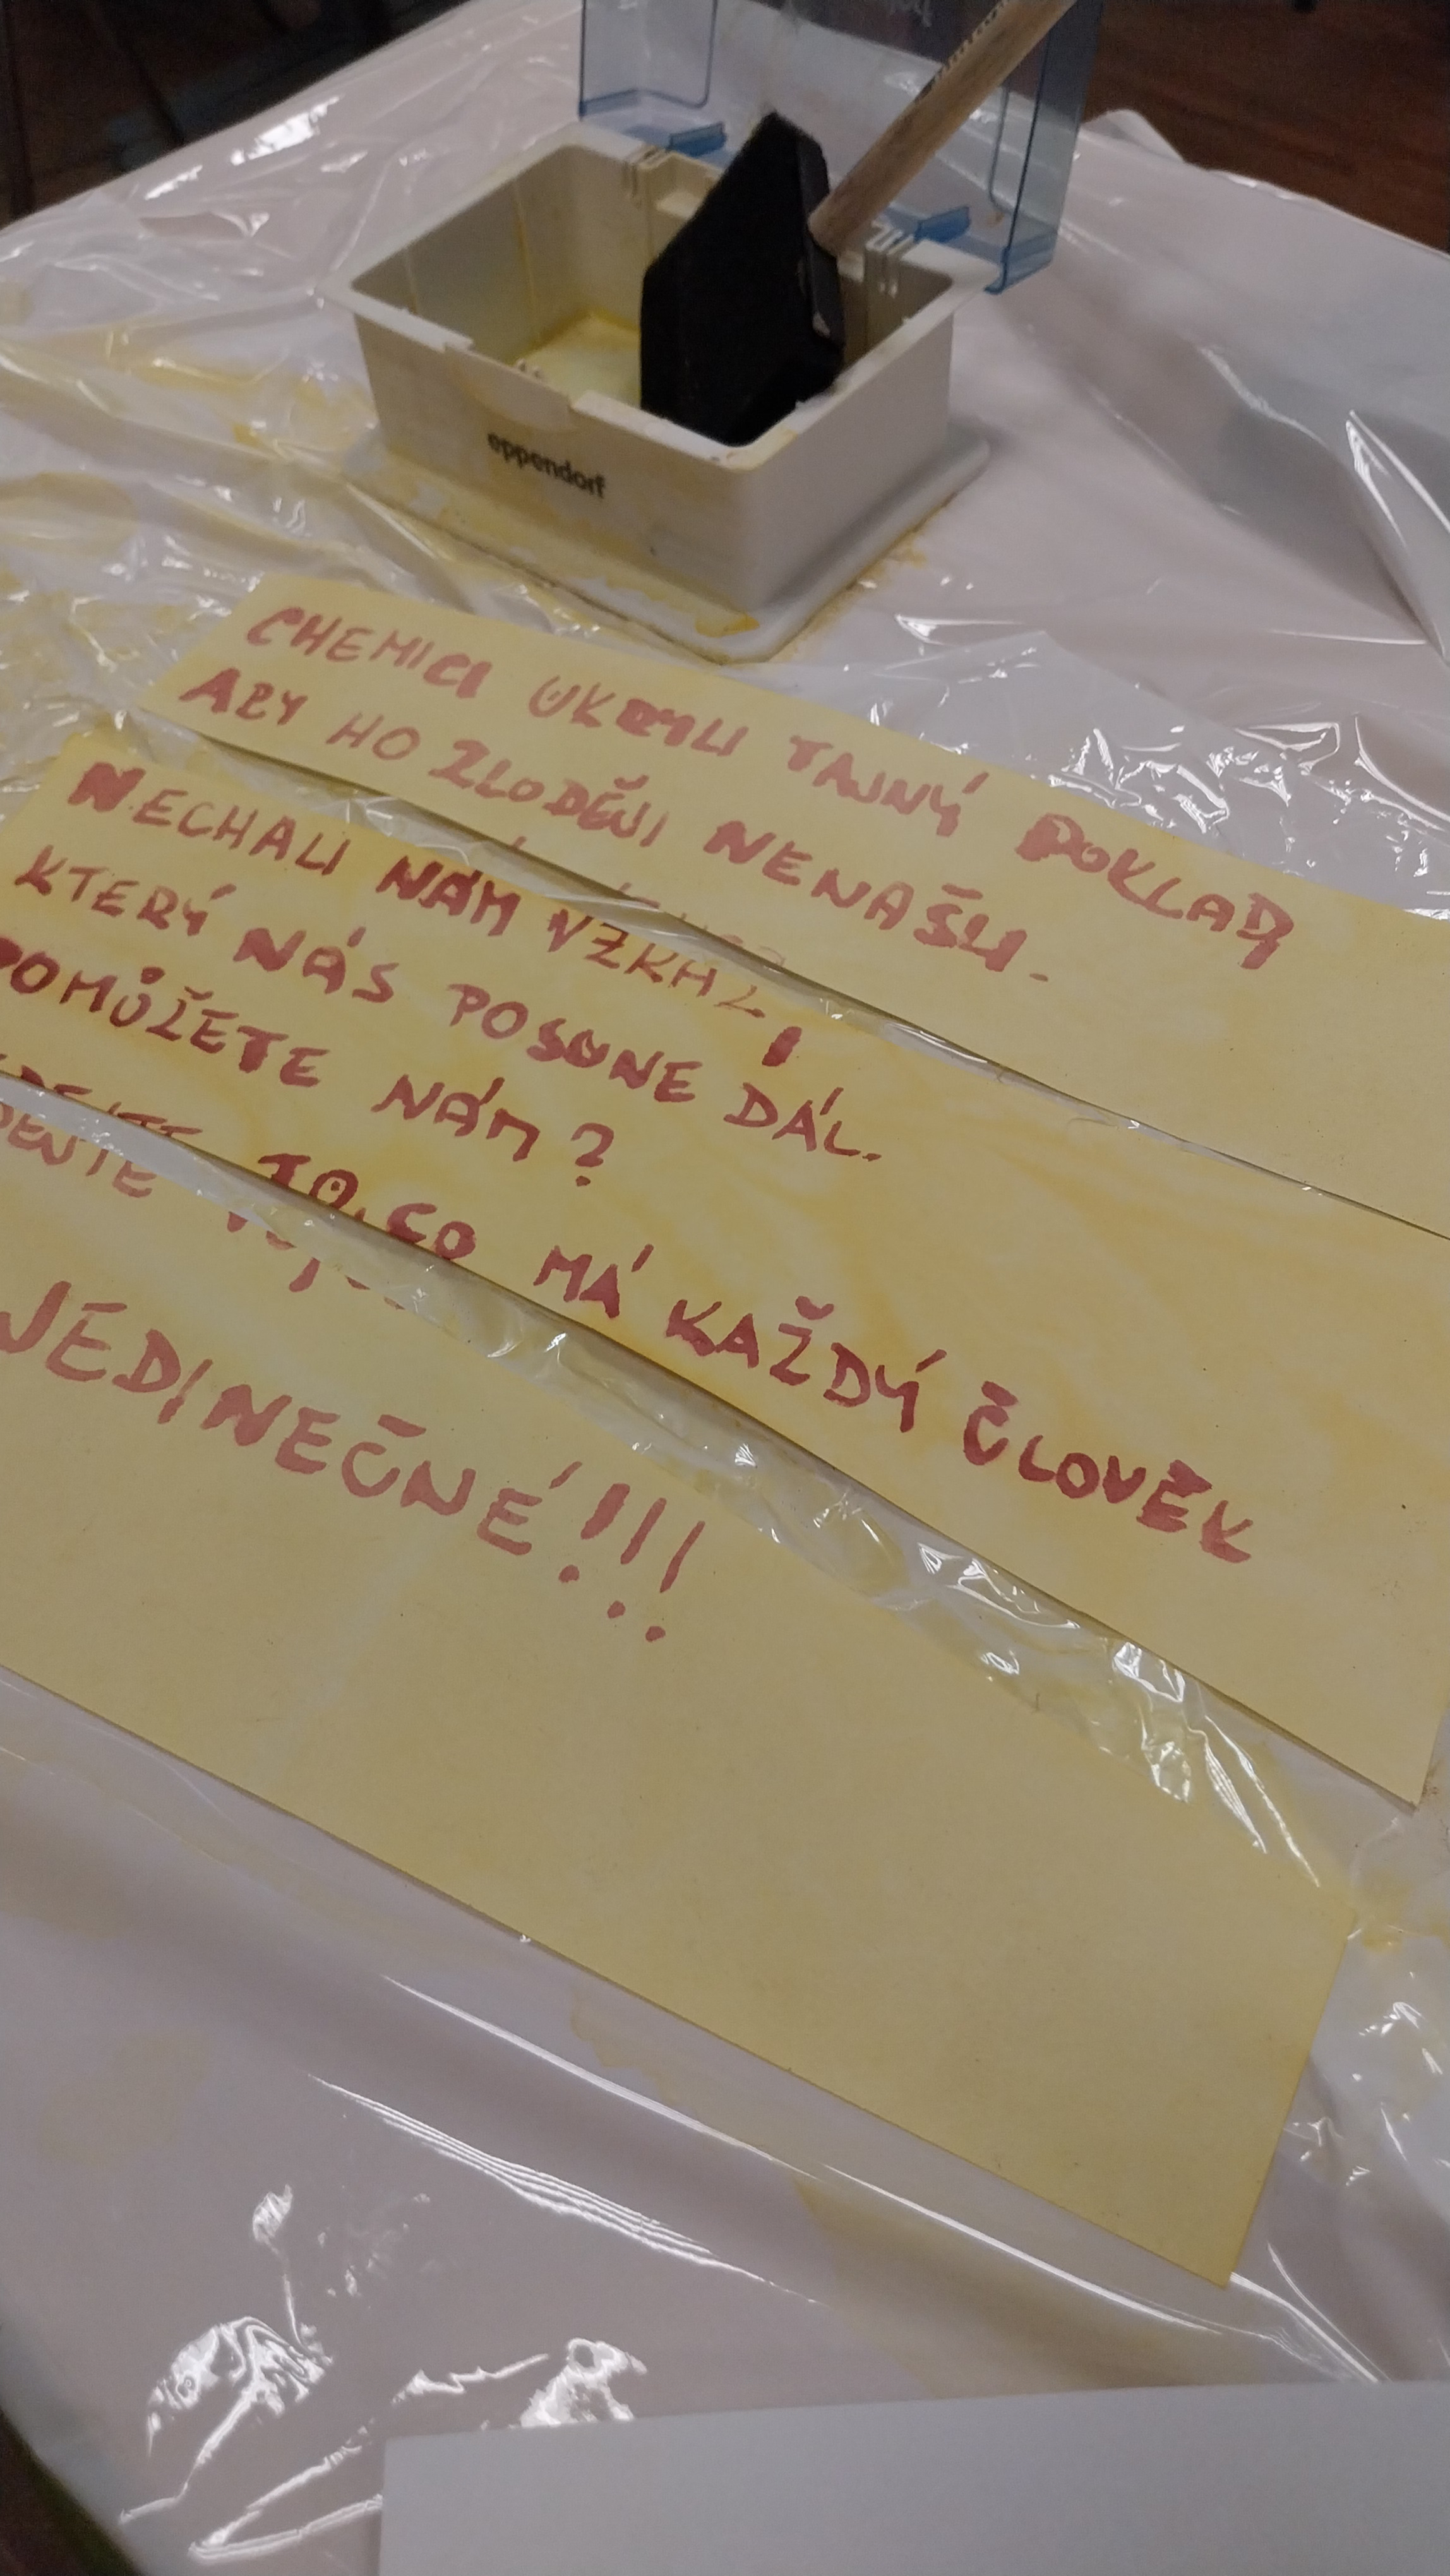 eppendorf
CHEMICI UKRYLI TAJNÝ POKLAD
ABY HO ZLODĚJI NENAŠLI.
NECHALI NÁM VZKAZ,
KTERÝ NÁS POSUNE DÁL.
POMŮŽETE NÁM?
TO, CO MÁ KAŽDÝ ČLOVĚK
JEDINEČNÉ!!!